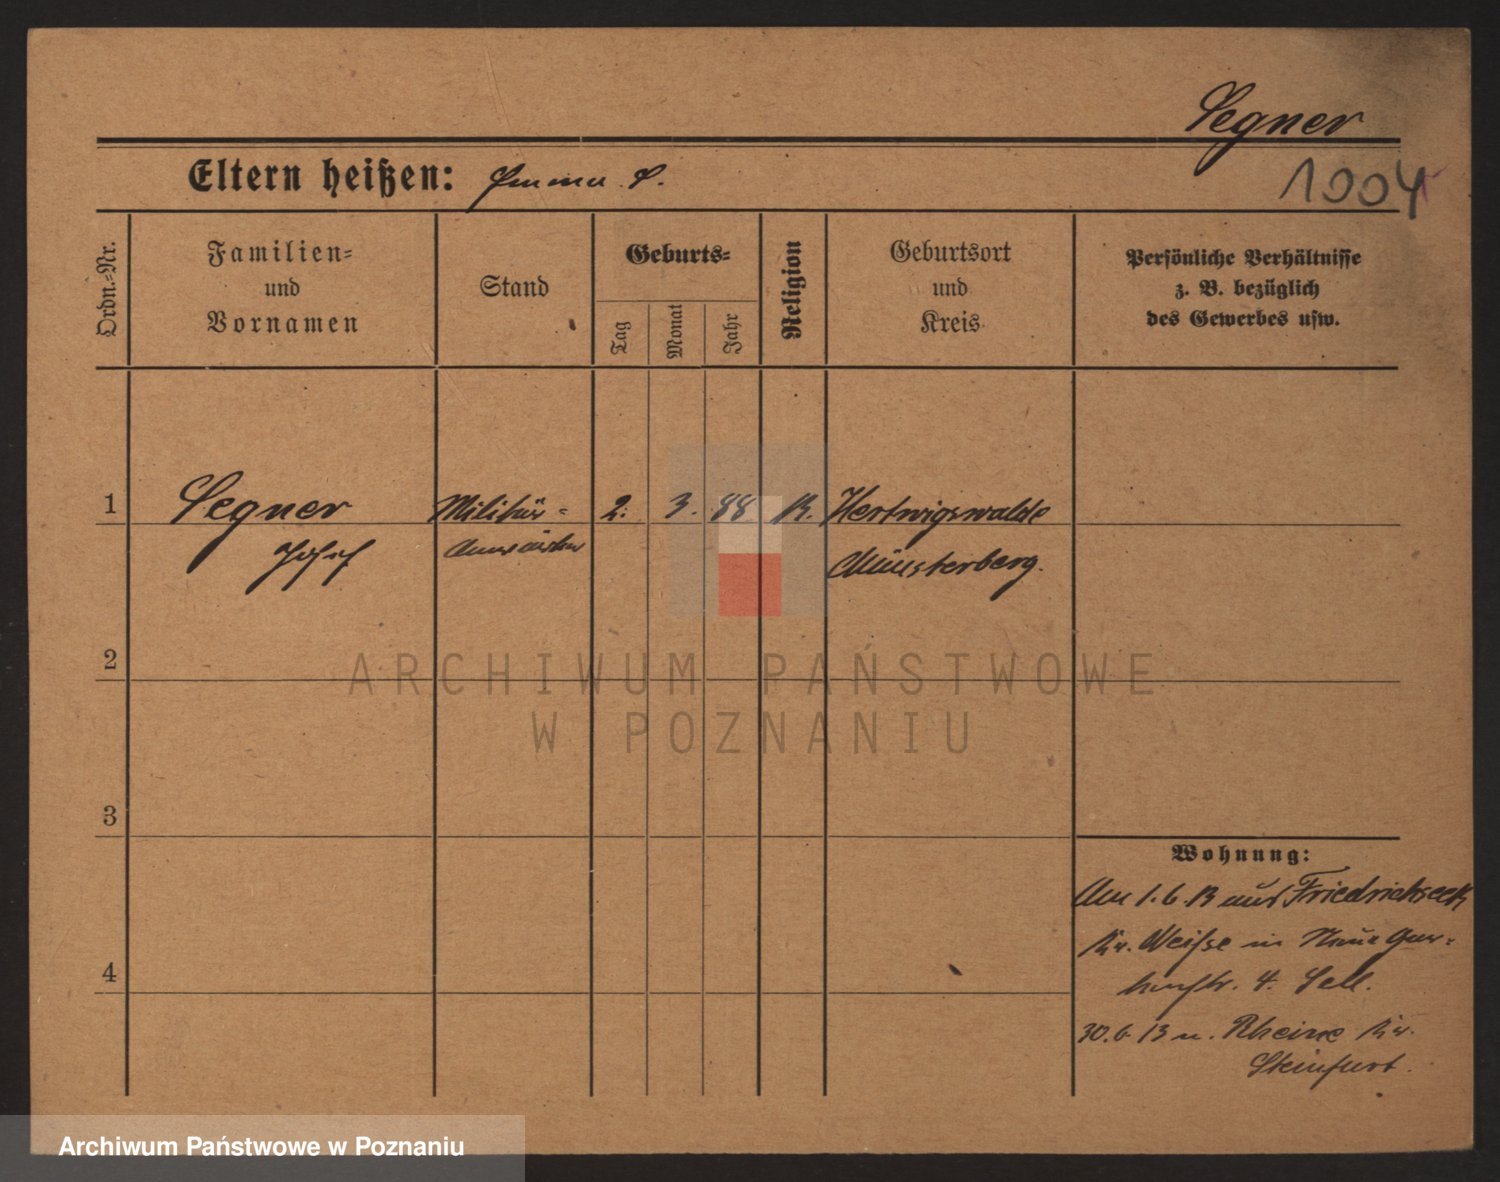 Segner
Eltern heißen: S.
1004
Ordn.=Nr.
Familien=
und
Vornamen
Stand
Geburts=
Tag
Monat
Jahr
Religion
Geburtsort
und
Kreis
Persönliche Verhältnisse
z. B. bezüglich
des Gewerbes usw.
1 Segner Militär= 2. 3. 88 K. Hertwigswalde
Josef Anwärter Münsterberg.
2
3
4
Wohnung:
Am 1.6.13 aus Friedrichseck
Kr. Neisse in
4.
30.6.13 n. Rheine Kr.
Steinfurt.
ARCHIWUM PAŃSTWOWE
W POZNANIU
Archiwum Państwowe w Poznaniu